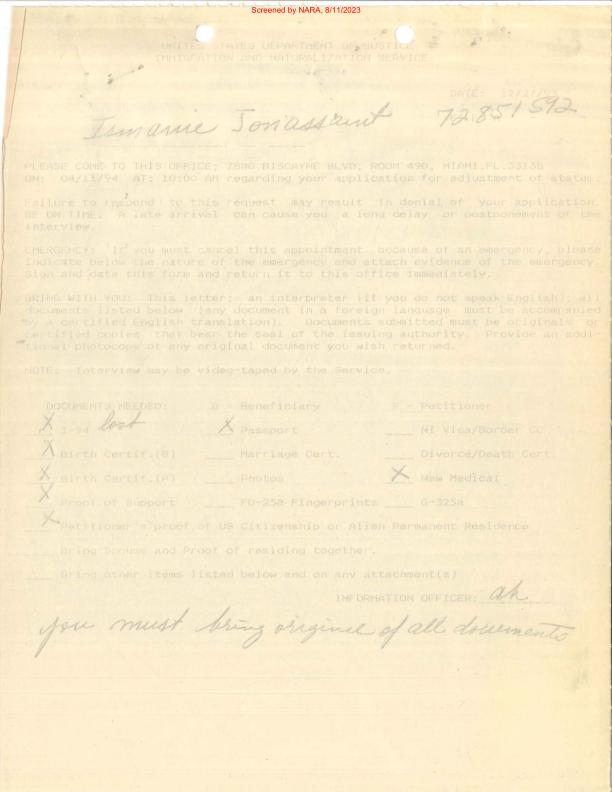 Screened by NARA, 8/11/2023
UNITED STATES DEPARTMENT OF JUSTICE
IMMIGRATION AND NATURALIZATION SERVICE
DATE:
Ismanie Jonassaint 72 851 592
PLEASE COME TO THIS OFFICE; 7880 BISCAYNE BLVD, ROOM 490, MIAMI.FL.33138
ON: 04/11/94 AT: 10:00 AM regarding your application for adjustment of status.
Failure to respond to this request may result in denial of your application.
BE ON TIME. A late arrival can cause you a long delay or postponement of the
interview.
EMERGENCY: If you must cancel this appointment because of an emergency, please
indicate below the nature of the emergency and attach evidence of the emergency.
Sign and date this form and return it to this office immediately.
BRING WITH YOU: This letter; an interpreter (if you do not speak English); all
documents listed below (any document in a foreign language must be accompanied
by a certified English translation). Documents submitted must be originals or
certified copies that bear the seal of the issuing authority. Provide an addi-
tional photocopy of any original document you wish returned.
NOTE: Interview may be video-taped by the Service.
DOCUMENTS NEEDED: B - Beneficiary P - Petitioner
X I-94 lost X Passport ____ NI Visa/Border CC
X Birth Certif.(B) ____ Marriage Cert. ____ Divorce/Death Cert.
X Birth Certif.(P) ____ Photos X New Medical
X Proof of Support ____ FD-258 Fingerprints ____ G-325A
X Petitioner's proof of US Citizenship or Alien Permanent Residence
____ Bring Spouse and Proof of residing together.
____ Bring other items listed below and on any attachment(s)
INFORMATION OFFICER: ah
you must bring original of all documents